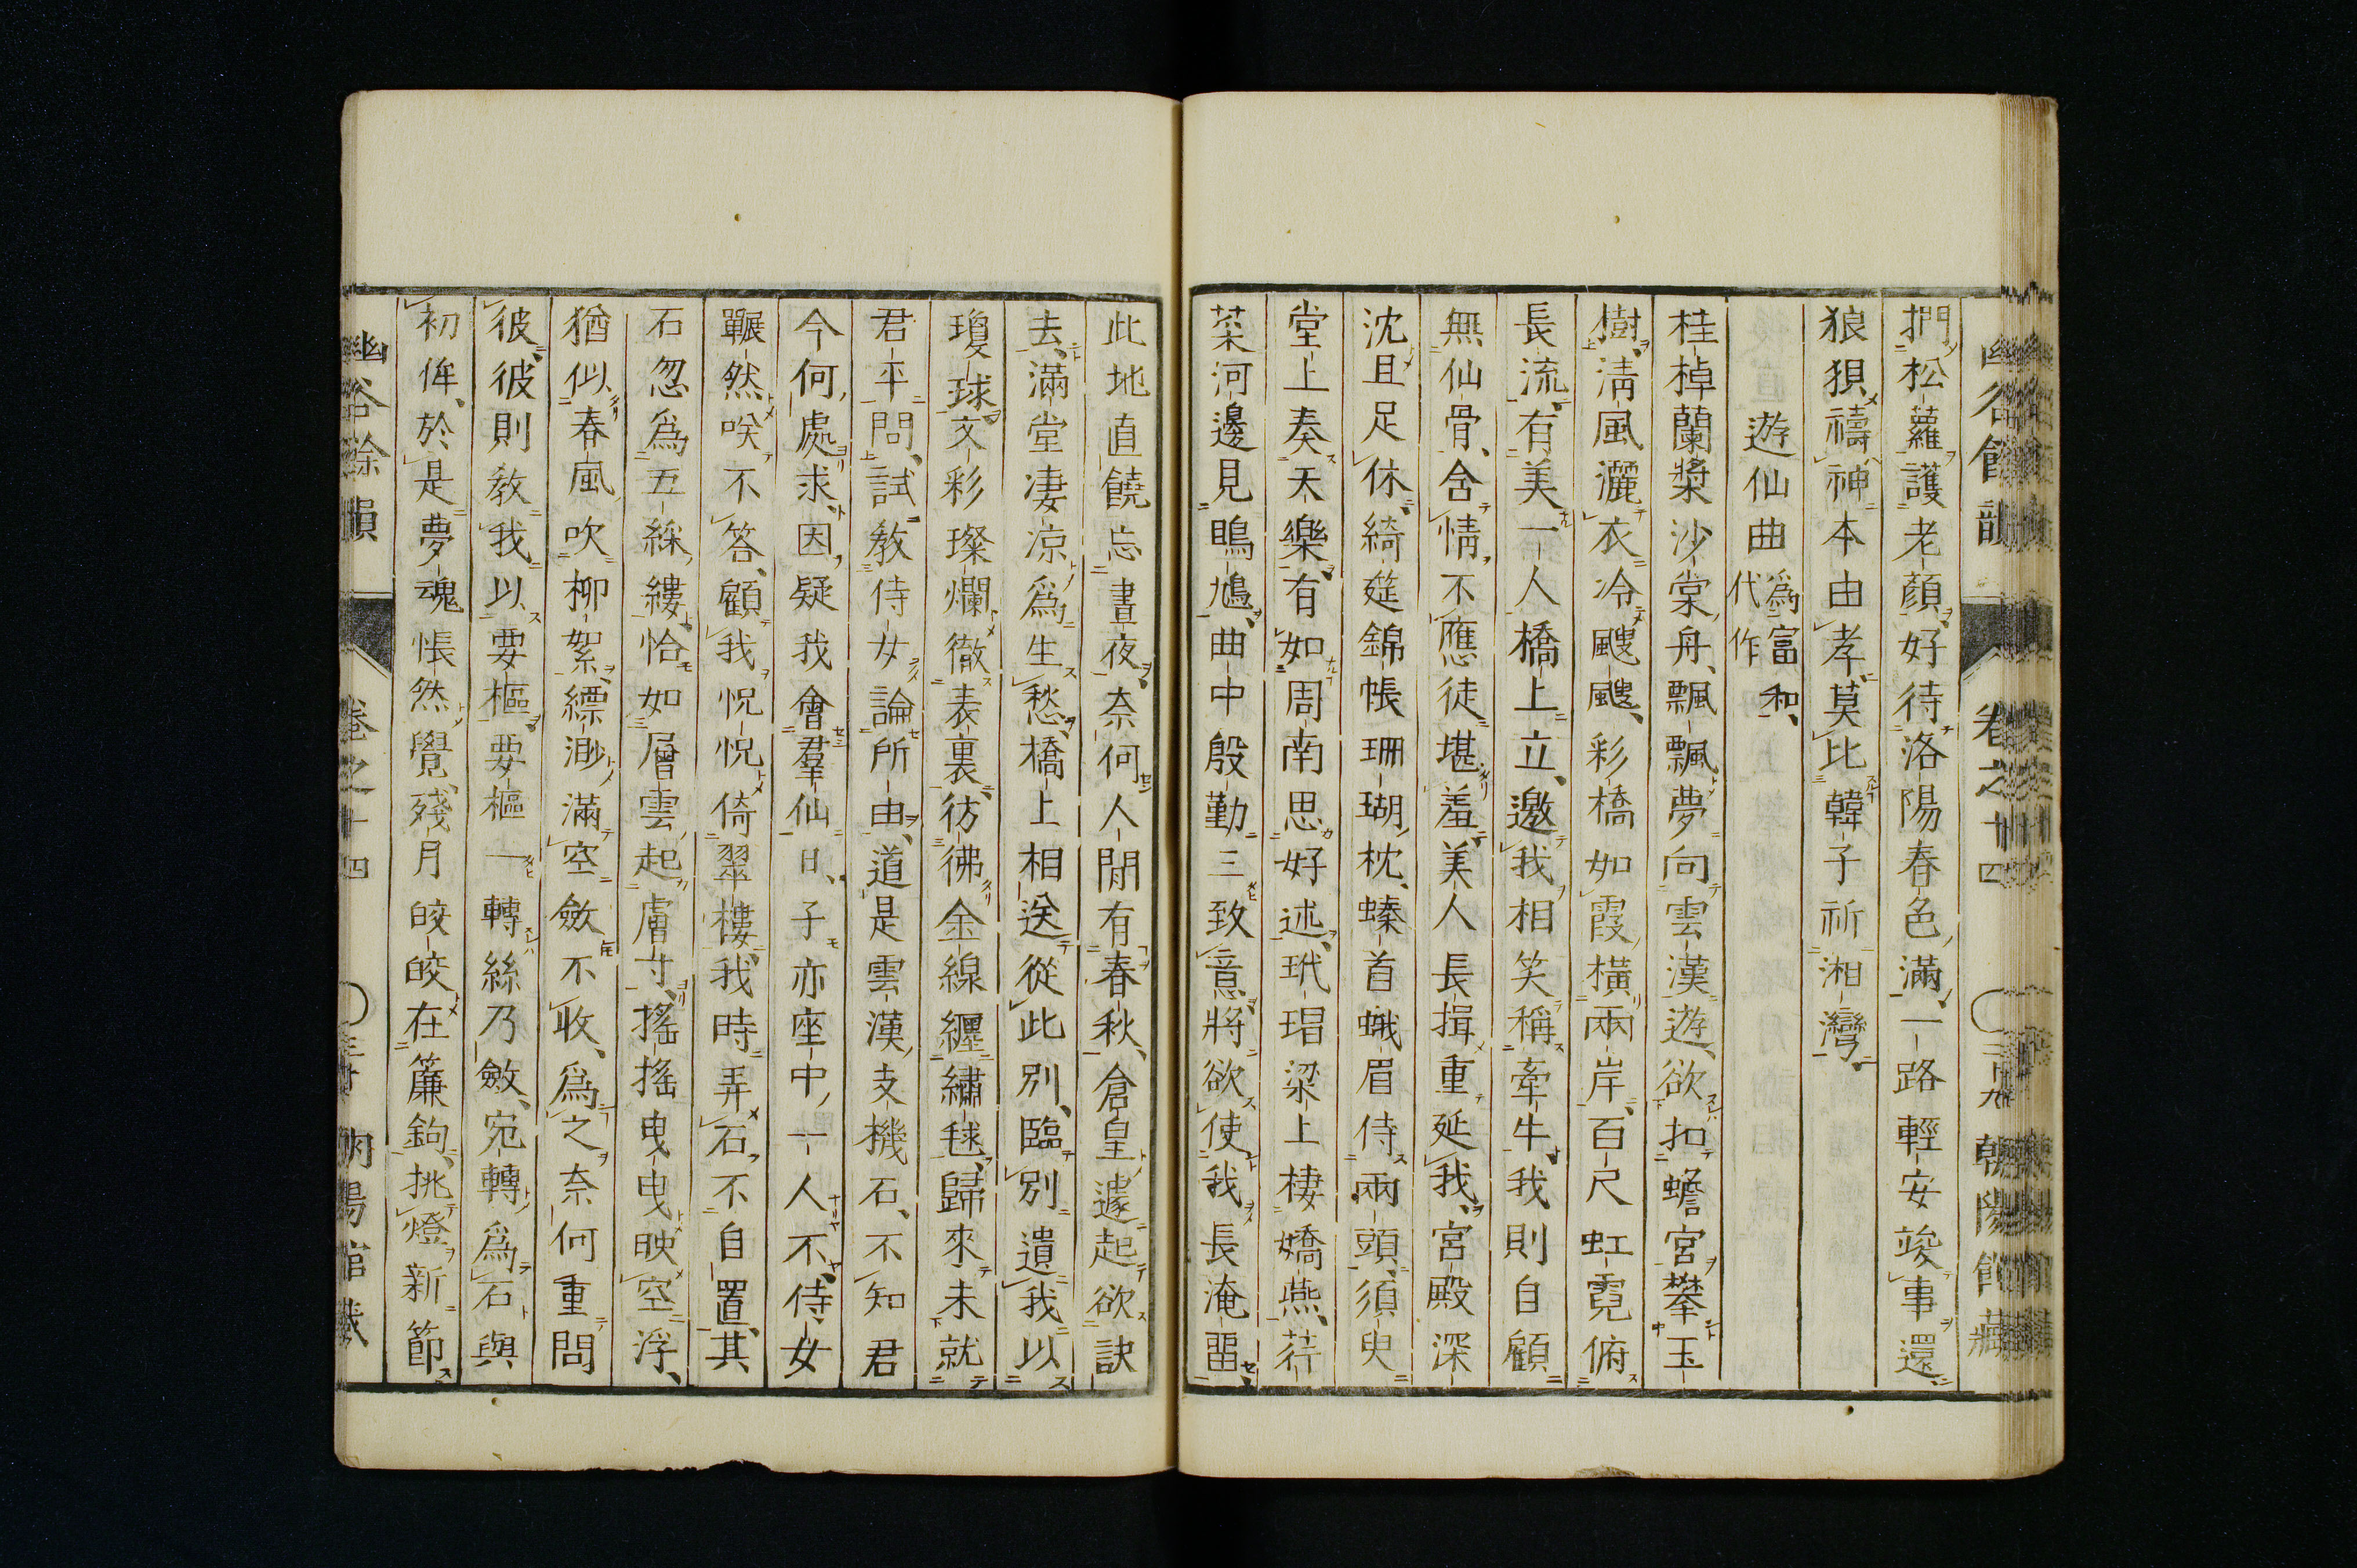 捫松蘿護老顏好待洛陽春色滿一路輕安竣事還
狼狽禱神本由孝莫比韓子祈湘灣
遊仙曲 爲富和代作
桂棹蘭槳沙棠舟飄飄夢向雲漢遊欲扣蟾宮攀玉
樹淸風灑衣冷颼颼彩橋如霞橫兩岸百尺虹霓俯
長流有美一人橋上立邀我相笑稱牽牛我則自顧
無仙骨含情不應徒堪羞美人長揖重延我宮殿深
沈且足休綺筵錦帳珊瑚枕螓首蛾眉侍兩頭須臾
堂上奏天樂有如周南思好逑玳瑁梁上棲嬌燕荇
菜河邊見鵙鳩曲中殷勤三致意將欲使我長淹留
幽谷餘韻 卷之十四 二十九 朝陽館藏
此地直饒忘晝夜奈何人閒有春秋倉皇遽起欲訣
去滿堂凄涼爲生愁橋上相送從此別臨別遺我以
瓊球文彩璨爛徹表裏彷彿金線纒繡毬歸來未就
君平問試敎侍女論所由道是雲漢支機石不知君
今何處求因疑我會羣仙日子亦座中一人不侍女
囅然咲不答顧我怳怳倚翠樓我時弄石不自置其
石忽爲五綵縷恰如層雲起膚寸搖搖曳曳映空浮
猶似春風吹柳絮縹渺滿空斂不收爲之奈何重問
彼彼則敎我以要樞要樞一轉絲乃斂宛轉爲石與
初侔於是夢魂悵然覺殘月皎皎在簾鉤挑燈新節
幽谷餘韻 卷之十四 三十 朝陽館藏